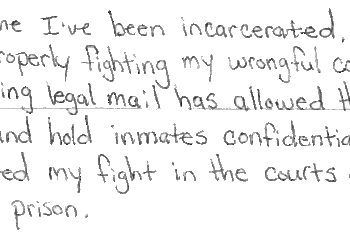 me I've been incarcerated,
roperly fighting my wrongful co
ing legal mail has allowed th
and hold inmates confidentia
ed my fight in the courts
prison.